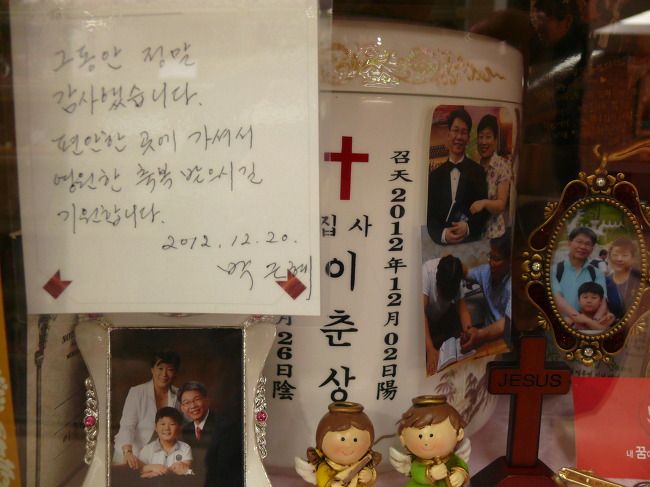 그동안 정말
감사했습니다.
편안한 곳에 가셔서
영원한 축복 받으시길
기원합니다.
2012.12.20.
집사
이춘상
召天2012年12月02日陽
月26日陰
JESUS
내 꿈